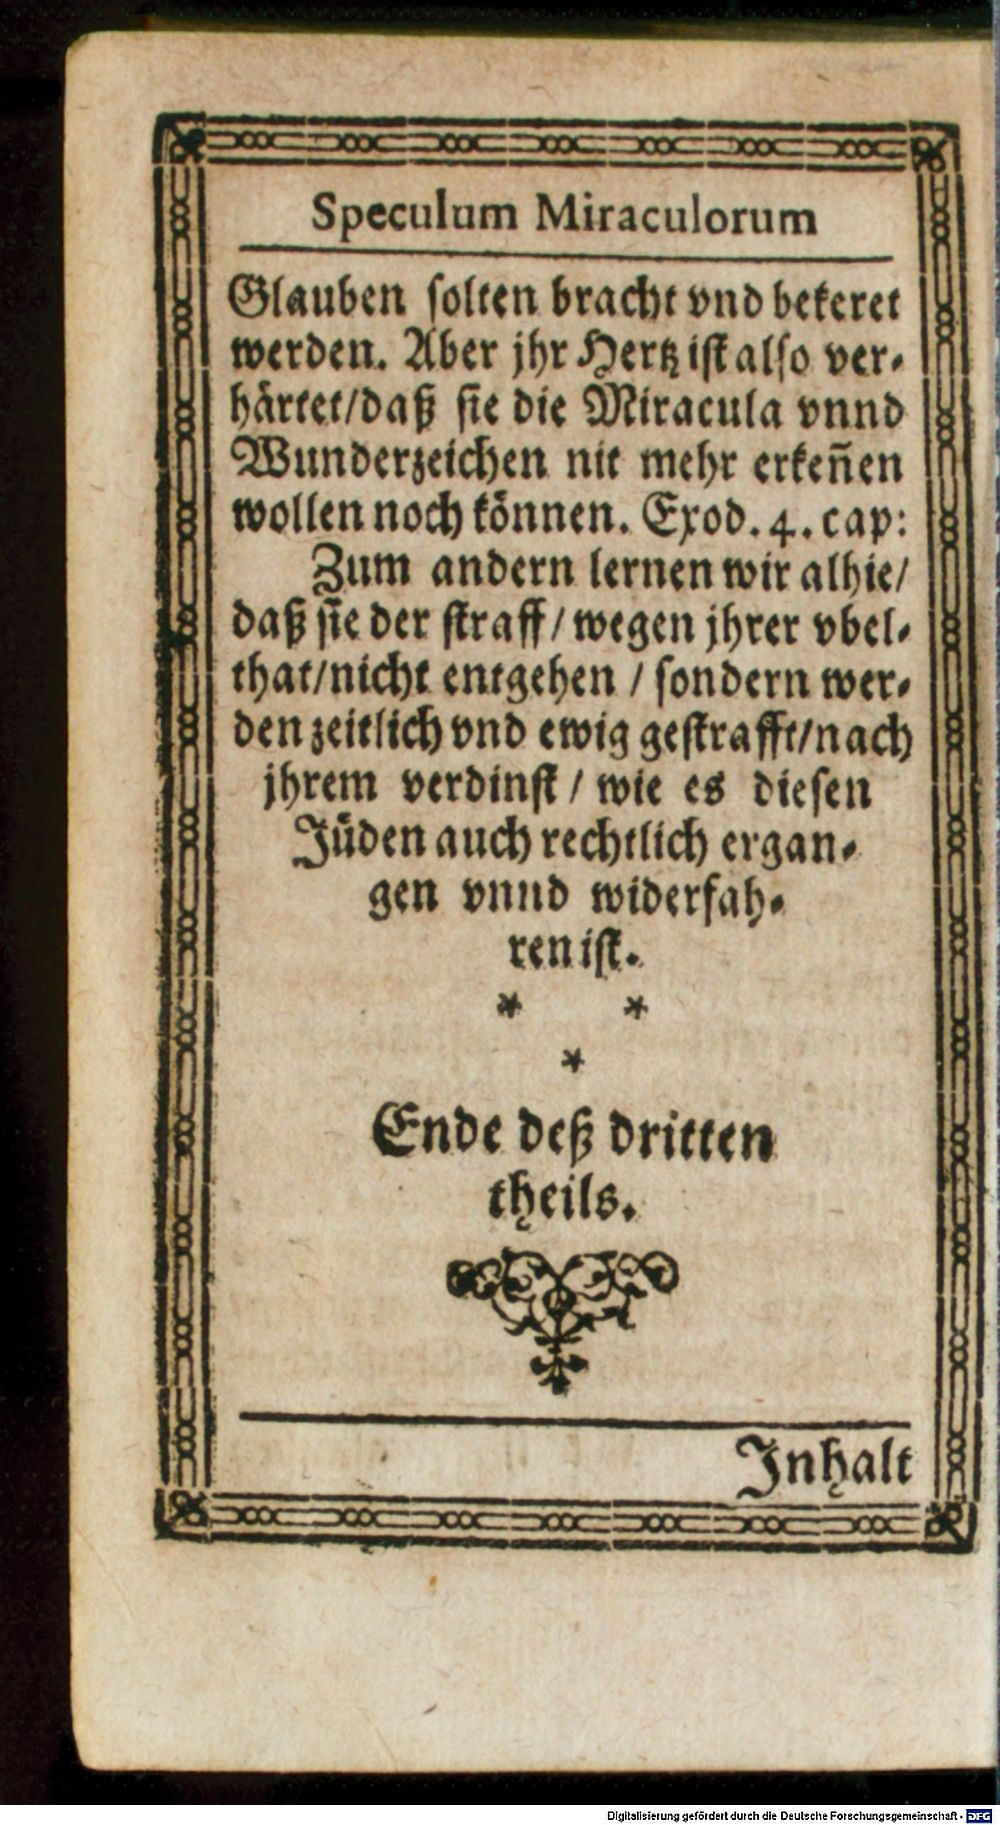 Speculum Miraculorum
Glauben solten bracht vnd bekeret
werden. Aber jhr Hertz ist also ver-
härtet/daß sie die Miracula vnnd
Wunderzeichen nit mehr erkeñen
wollen noch können. Exod. 4. cap:
Zum andern lernen wir alhie/
daß sie der straff/ wegen jhrer vbel-
that/nicht entgehen / sondern wer-
den zeitlich vnd ewig gestrafft/nach
jhrem verdinst / wie es diesen
Jüden auch rechtlich ergan-
gen vnnd widerfah-
ren ist.
* *
*
Ende deß dritten
theils.
Inhalt
Digitalisierung gefördert durch die Deutsche Forschungsgemeinschaft - DFG